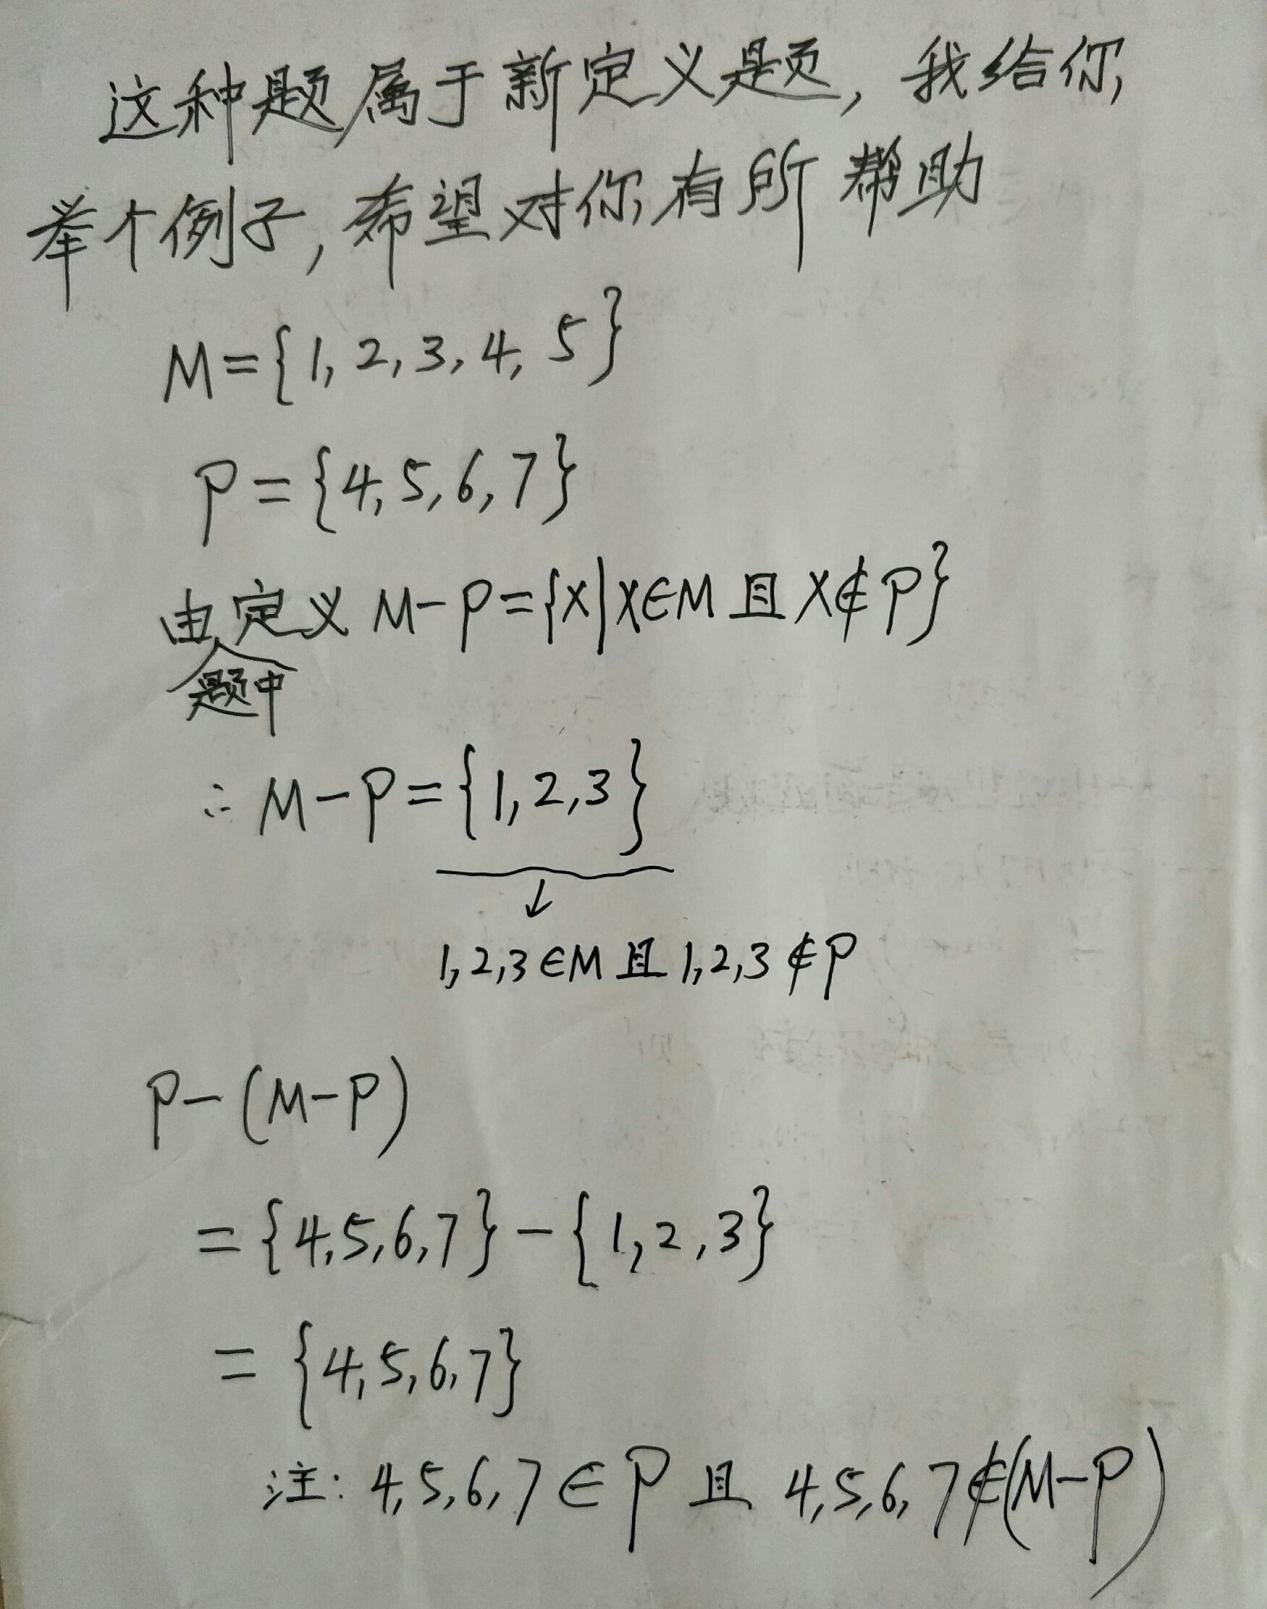 这种题属于新定义题, 我给你
举个例子, 希望对你有所帮助
M={1, 2, 3, 4, 5}
P={4, 5, 6, 7}
由定义 M-P={x|x∈M 且 x∉P}
题中
∴ M-P={1, 2, 3}
↓
1, 2, 3∈M 且 1, 2, 3∉P
P-(M-P)
={4, 5, 6, 7}-{1, 2, 3}
={4, 5, 6, 7}
注: 4, 5, 6, 7∈P 且 4, 5, 6, 7∉(M-P)